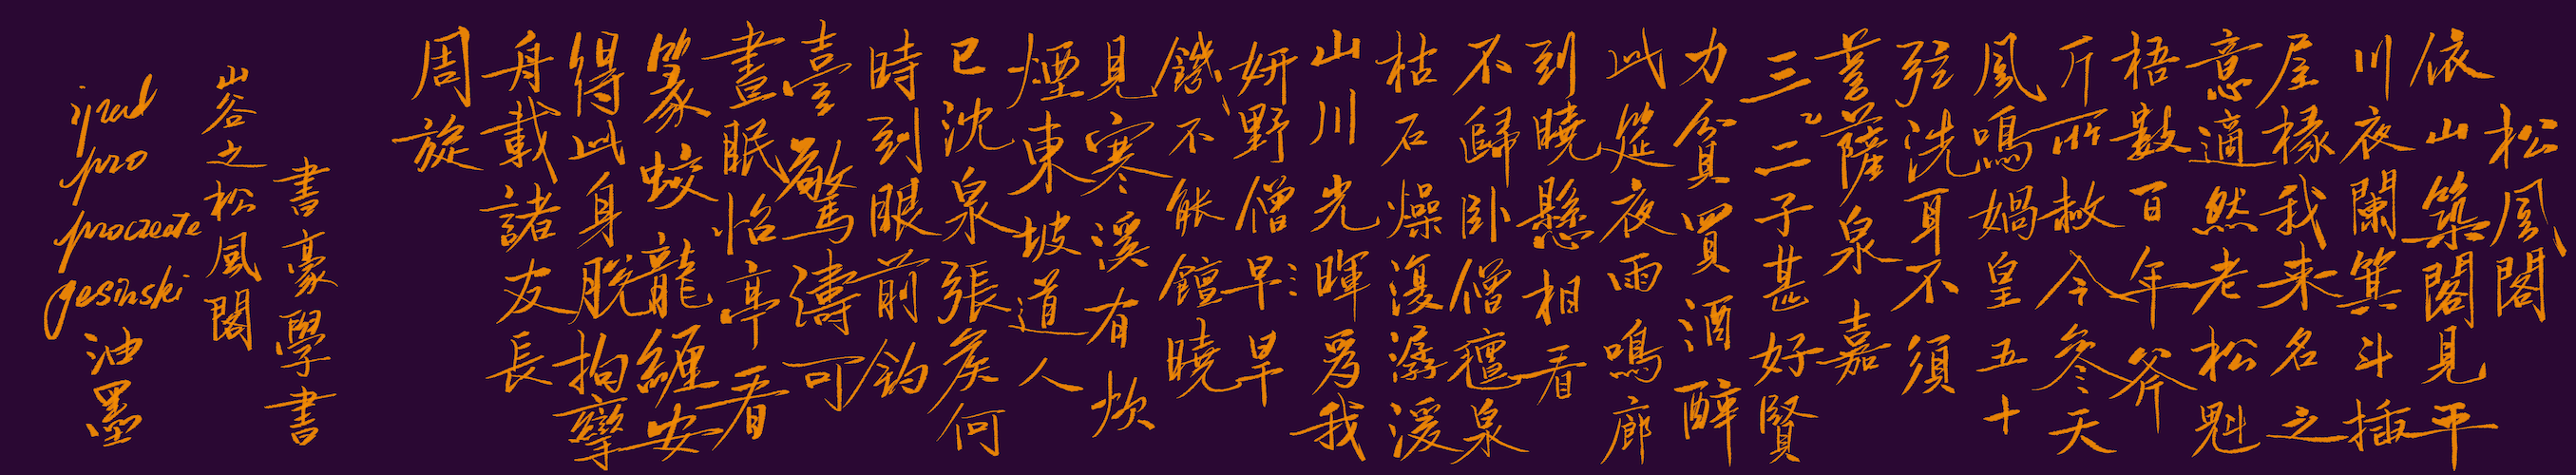 松風閣
依山築閣見平
川夜闌箕斗插
屋椽我来名之
意適然老松魁
梧數百年斧
斤所赦今參天
風鳴媧皇五十
弦洗耳不須
菩薩泉嘉
三二子甚好賢
力貧買酒醉
此筵夜雨鳴廊
到曉懸相看
不歸卧僧氈泉
枯石燥復潺湲
山川光暉爲我
妍野僧早旱
饑不能饘曉
見寒溪有炊
煙東坡道人
已沈泉張侯何
時到眼前釣
臺驚濤可
晝眠怡亭看
篆蛟龍纏安
得此身脫拘攣
舟載諸友長
周旋
書豪學書
山谷之松風閣
ipad
pro
procreate
gesinski
油墨